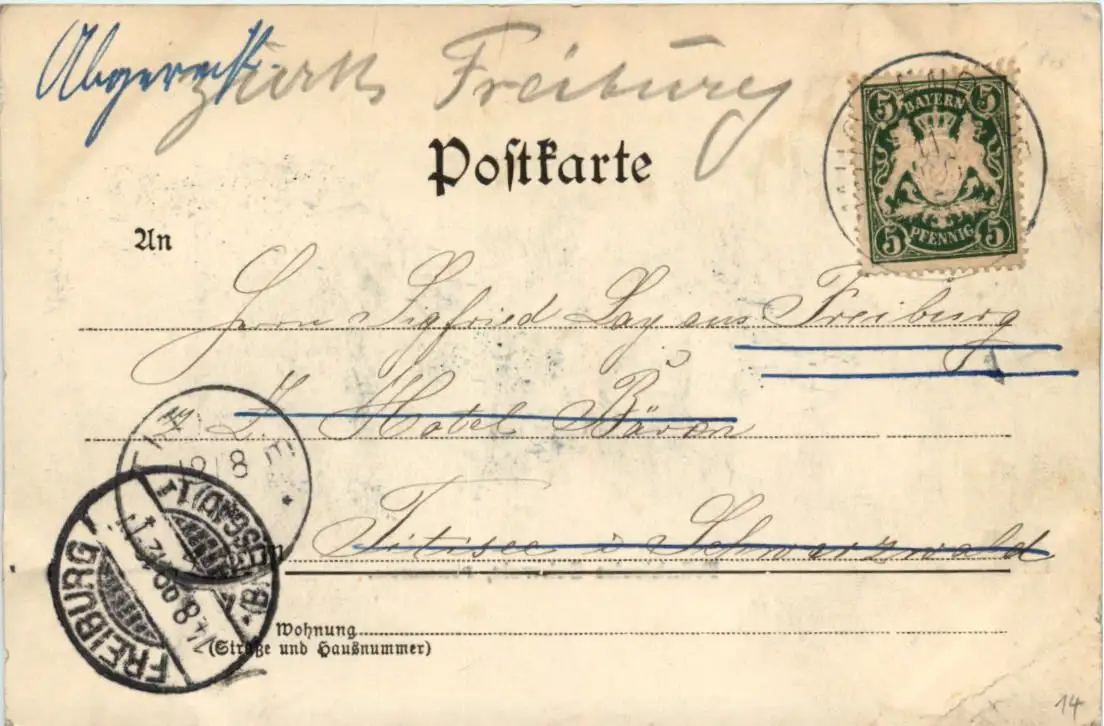 Abgereist.
zurück Freiburg
Postkarte
5 5
BAYERN
PFENNIG
5 5
An
Herrn Sigfried Lay aus Freiburg
Z. Hotel Bären
Titisee i Schwarzwald
FREIBURG (BREISGAU) 1
Wohnung
(Straße und Hausnummer)
14